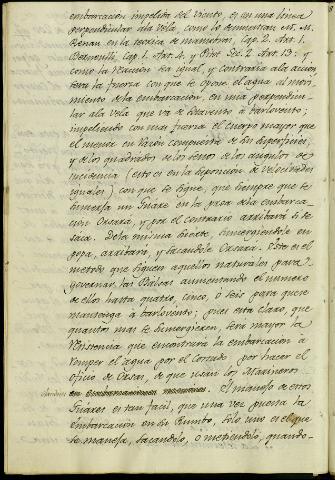 embarcacion impelida del viento, es en una linea
perpendicular ala vela, como lo demuestran M. M.
Renau en la teorica de maniobras, Cap. 2. Art. 1.
Bernoulli, Cap. 1. Art. 4. y Pitot Sec. 2. Art. 13: y
como la reaccion es igual, y contraria ala accion,
sera la fuerza con que se opone el agua al movi-
miento de la embarcacion, en una perpendicu-
lar ala vela que va de sotavento â barlovento;
impeliendo con mas fuerza el cuerpo mayor que
el menor en razon compuesta de sus superficies,
y de los quadrados de los senos de los angulos de
incidencia (esto es en la suposicion de velocidades
iguales) con que se sigue, que siempre que se
sumerja un Guare en la proa de la embarca-
cion Orzará, y por el contrario arribará si se
saca. De la misma suerte, sumergiendole en
popa, arribará, y sacandole Orzará. Este es el
metodo que siguen aquellos naturales para
governar las Balsas aumentando el numero
de ellos hasta quatro, cinco, ô seis para que se
mantenga â barlovento; pues esta claro, que
quantos mas se sumergieren, sera mayor la
resistencia que encontrará la embarcacion â
romper el agua por el costado, por hacer el
oficio de Orzas, de que usan los Marineros
El manejo de estos
Guares es tan facil, que una vez puesta la
embarcacion en su Rumbo, solo uno es el que
se maneja, sacandolo, o metiendolo, quando